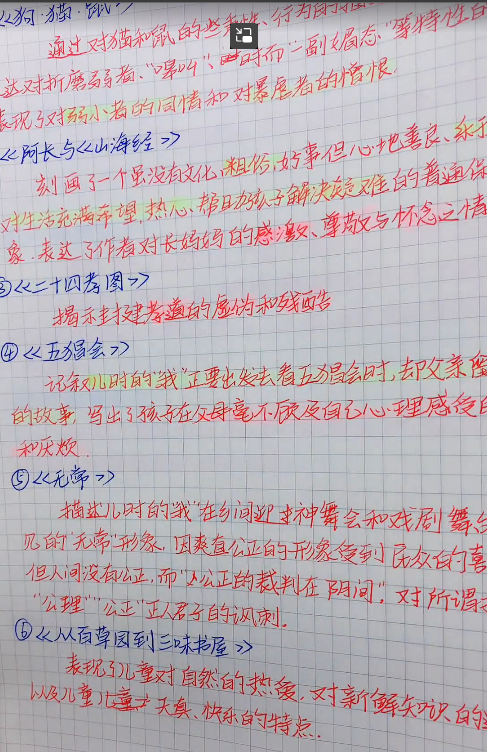 《狗·猫·鼠》
通过对猫和鼠的些秉性、行为的描
达对折磨弱者、"嗥叫"、时而"一副媚态"等特性的
表现了对弱小者的同情和对暴虐者的憎恨.
《阿长与《山海经》》
刻画了一个虽没有文化,粗俗,好事但心地善良、乐于
对生活充满希望,热心、帮助孩子解决疑难的普通保
象.表达了作者对长妈妈的感激、尊敬与怀念之情
③《二十四孝图》
揭示封建孝道的虚伪和残酷
④《五猖会》
记叙儿时的"我"正要出发去看五猖会时,却父亲
的故事,写出了孩子在父母毫不顾及自己心理感受
和厌烦.
⑤《无常》
描述儿时的"我"在乡间迎神舞会和戏剧舞台
见的"无常"形象,因爽直公正的形象受到民众的喜
但人间没有公正,而"公正的裁判在阴间",对所谓
"公理""公正"正人君子的讽刺.
⑥《从百草园到三味书屋》
表现了儿童对自然的热爱,对新鲜知识的
以及儿童儿童天真、快乐的特点.